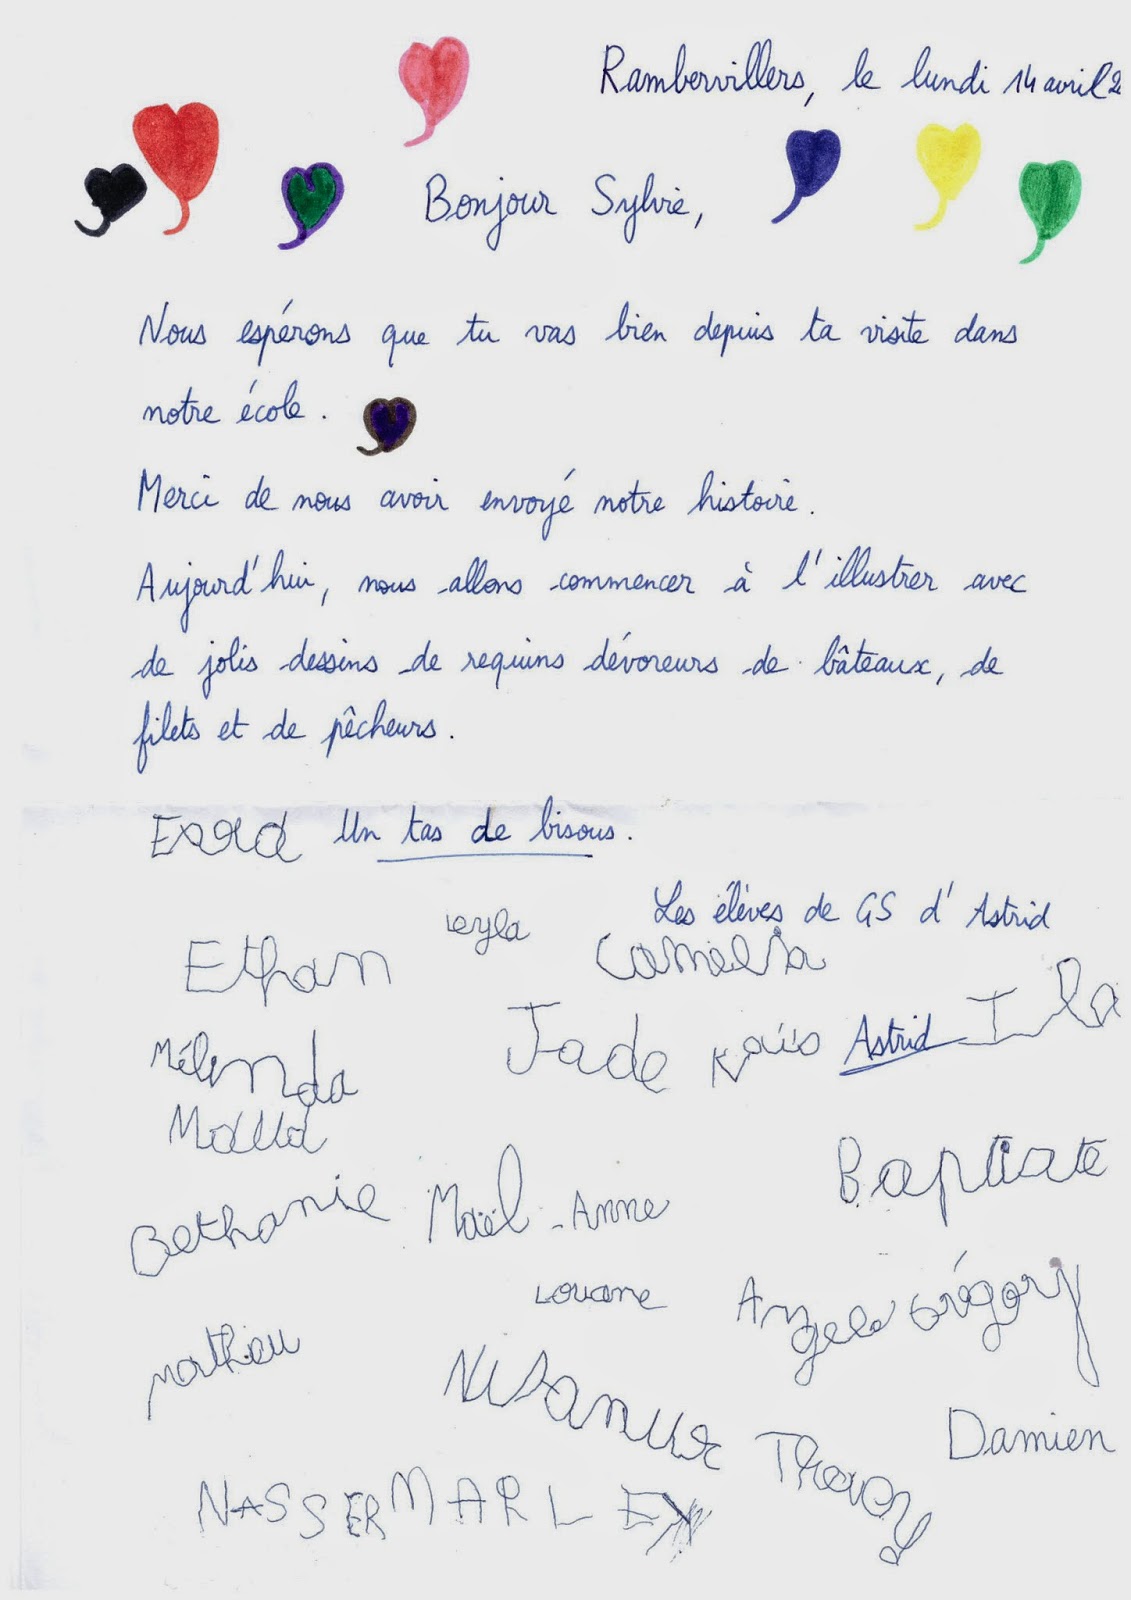 Rambervillers, le lundi 14 avril 2
Bonjour Sylvie,
Nous espérons que tu vas bien depuis ta visite dans
notre école.
Merci de nous avoir envoyé notre histoire.
Aujourd'hui, nous allons commencer à l'illustrer avec
de jolis dessins de requins dévoreurs de bâteaux, de
filets et de pêcheurs.
Esra Un tas de bisous.
Les élèves de GS d'Astrid
Leyla
Ethan Camélia
Jade Kaïs Astrid
Mélinda
Baptiste
Bethanie Maël-Anne
Louane Angele Grégory
Mathieu
Nisanur Damien
NASSER MARLEY